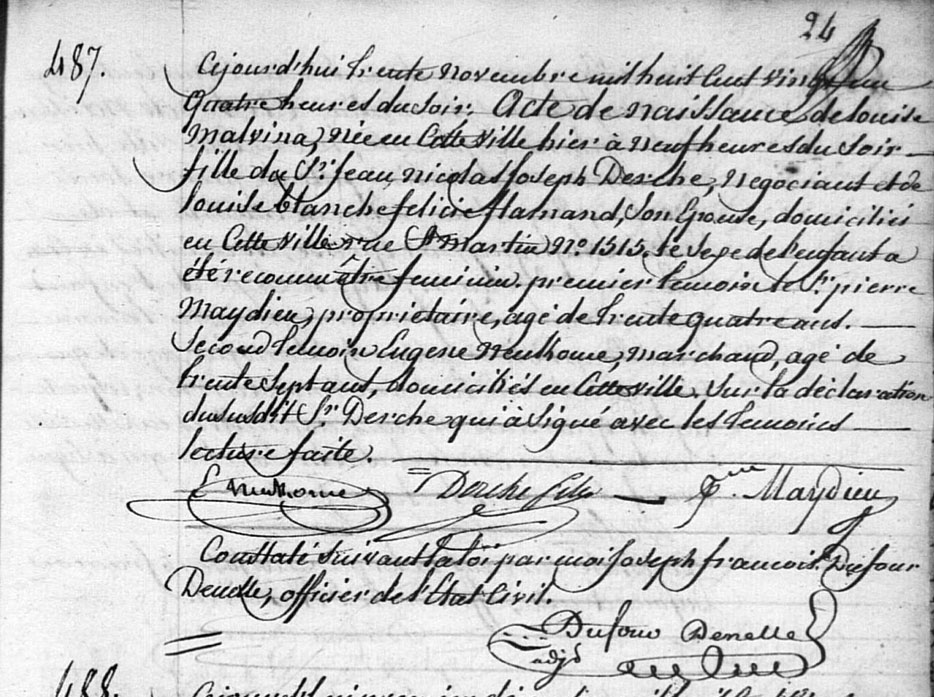 24
487. Cejourd'hui trente novembre mil huit Cent vingt un
Quatre heures du soir. Acte de naissance de louise
Malvina, Née en Cette ville hier à Neuf heures du Soir
fille de Sr. Jean Nicolas Joseph Derche, Negociant et de
louise blanche felicie flamand, Son Epouse, domiciliés
en Cette ville rue St Martin No. 1515. le Sexe de l'enfant a
été reconnu être feminin. premier temoin le Sr. pierre
Maydieu, proprietaire, agé de trente quatre ans.
Second temoin Eugene Neulhome, Marchand, agé de
trente Sept ans, domiciliés en Cette ville. Sur la déclaration
du susdit Sr. Derche qui à Signé avec les temoins
lecture faite.
E Neulhome = Derche fils — Pre. Maydieu
Constaté Suivant la loi par moi Joseph francois Dufour
Denelle, officier de l'Etat Civil.
Dufour Denelle
adjt
488.